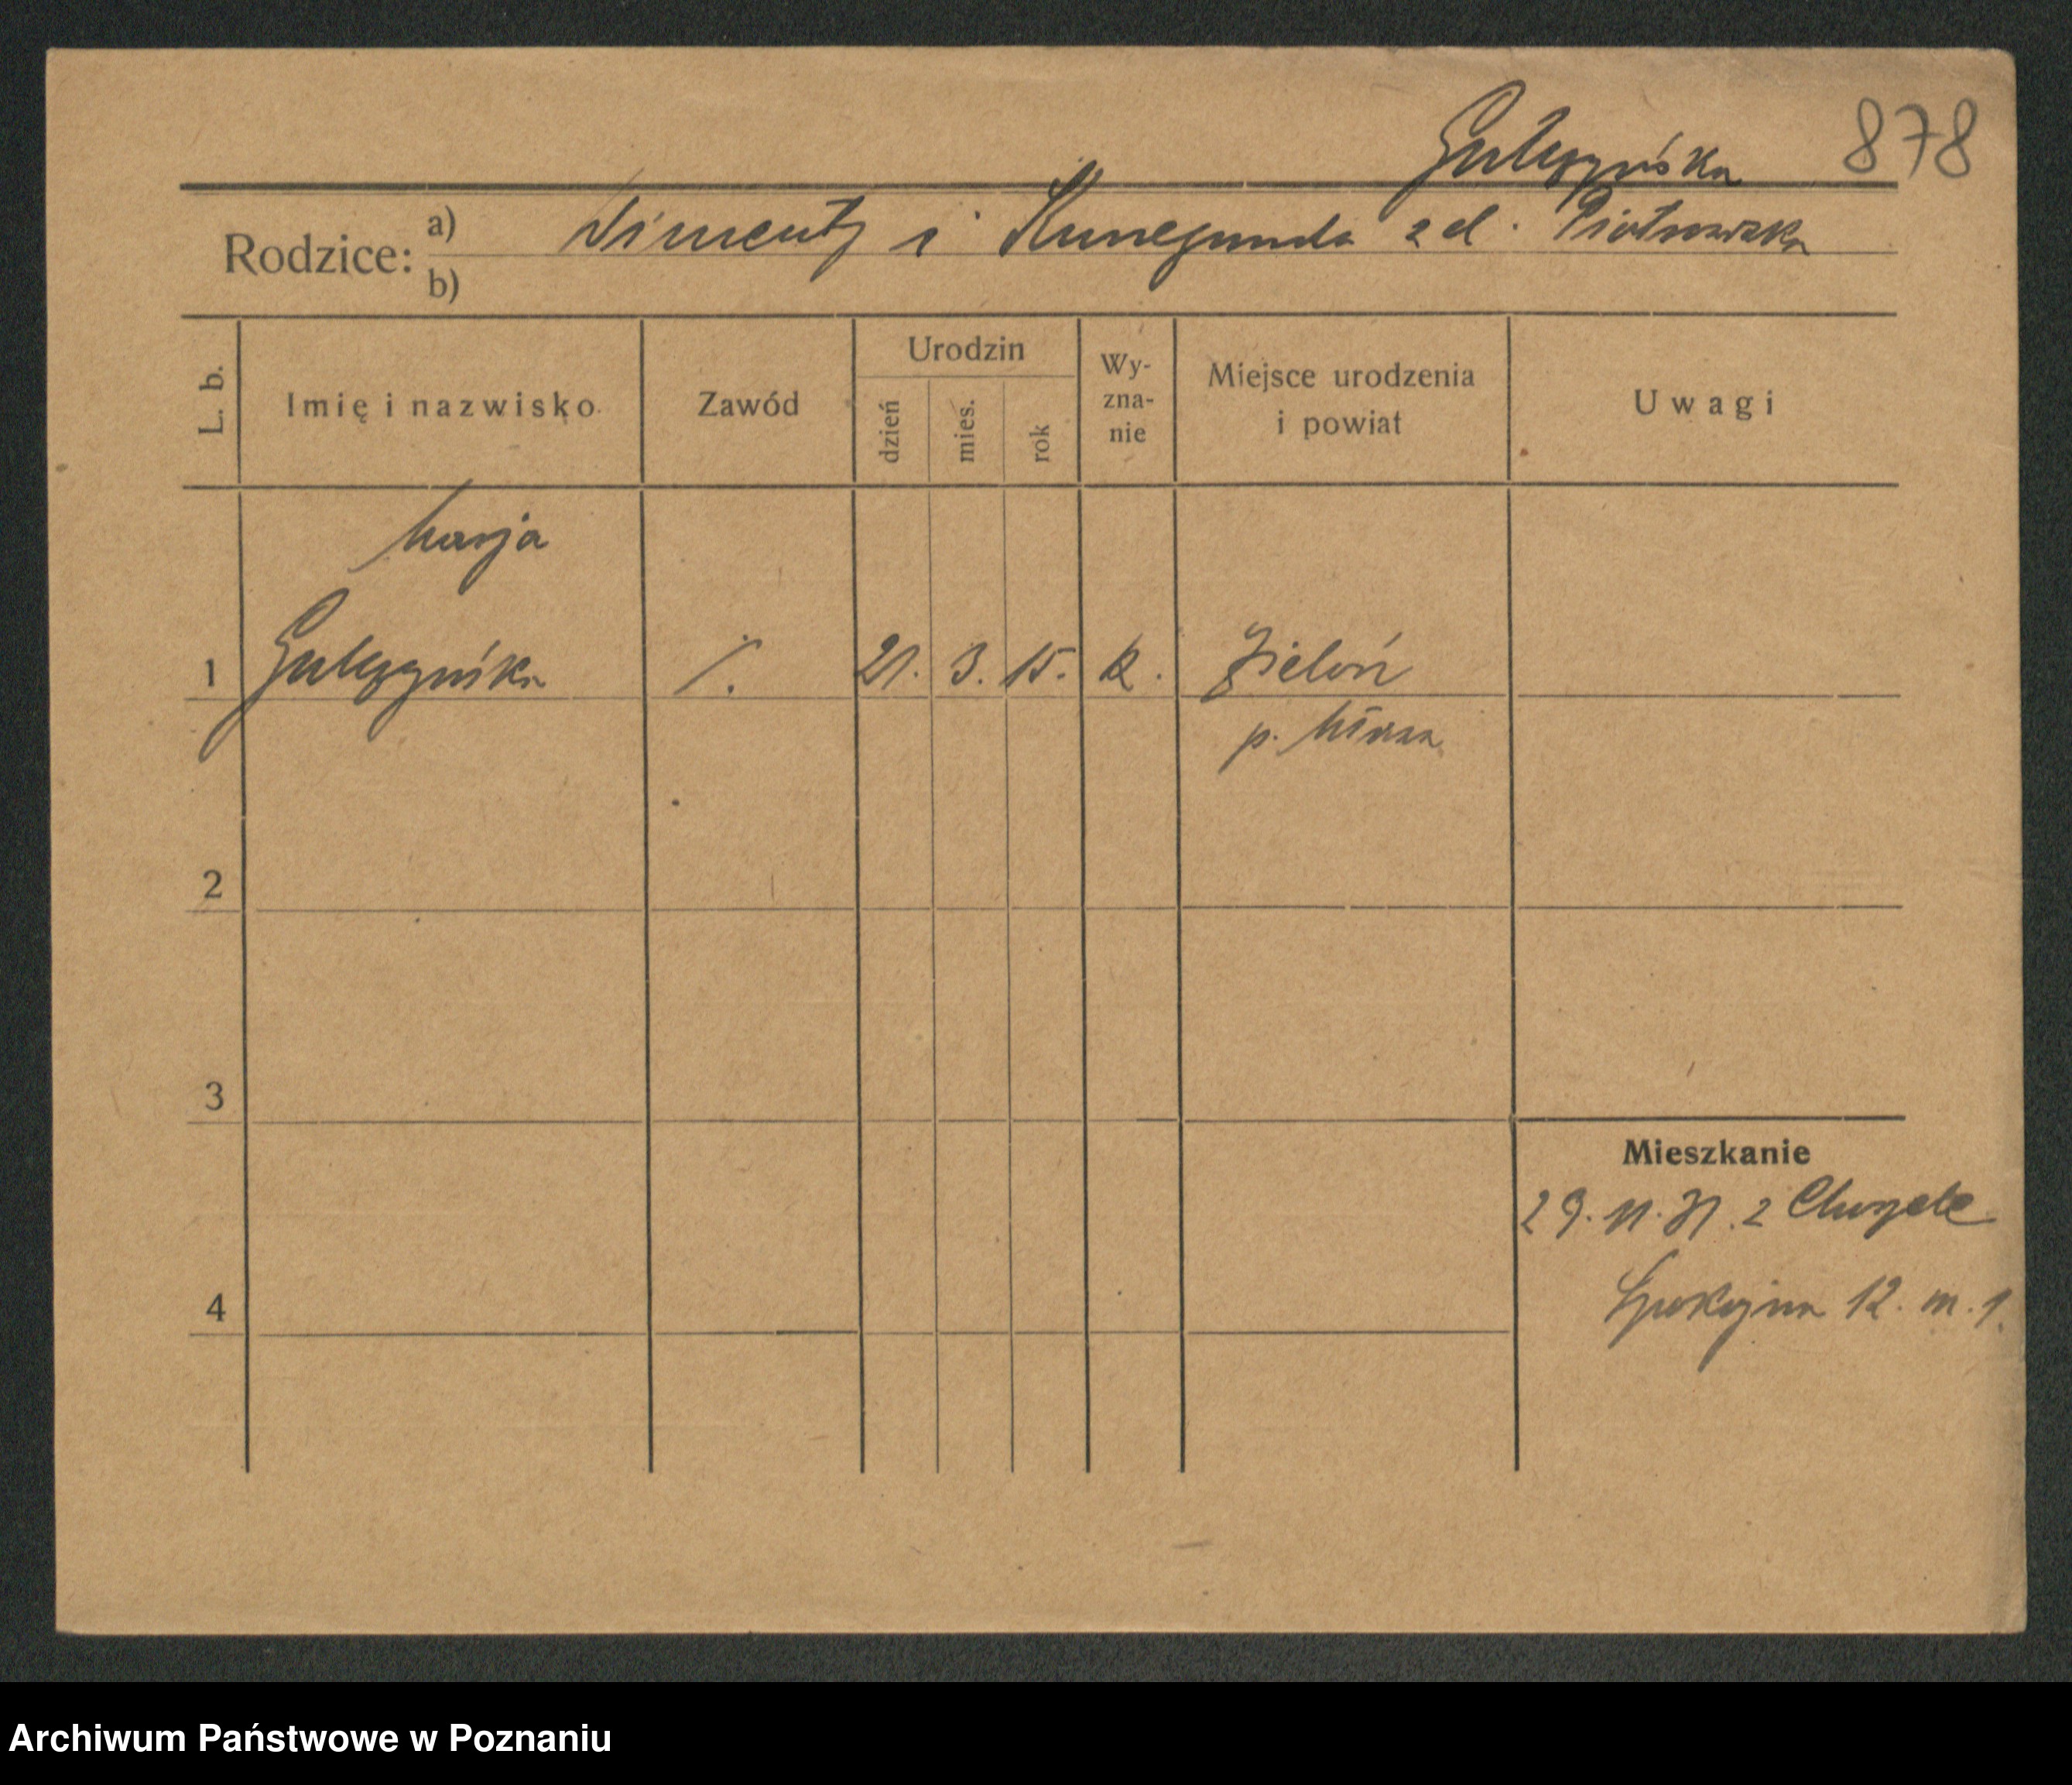 Gałczyńska 878
Rodzice: a) Wincenty i Kunegunda z d. Piotrowska
b)
L. b. Imię i nazwisko Zawód Urodzin dzień mies. rok Wy-zna-nie Miejsce urodzenia i powiat Uwagi
Marja
1 Gałczyńska ./. 21. 3. 15. k. Zieluń
p. Mława
2
3
Mieszkanie
29. 11. 31. z
4 Spokojna 12. m. 1.
Archiwum Państwowe w Poznaniu